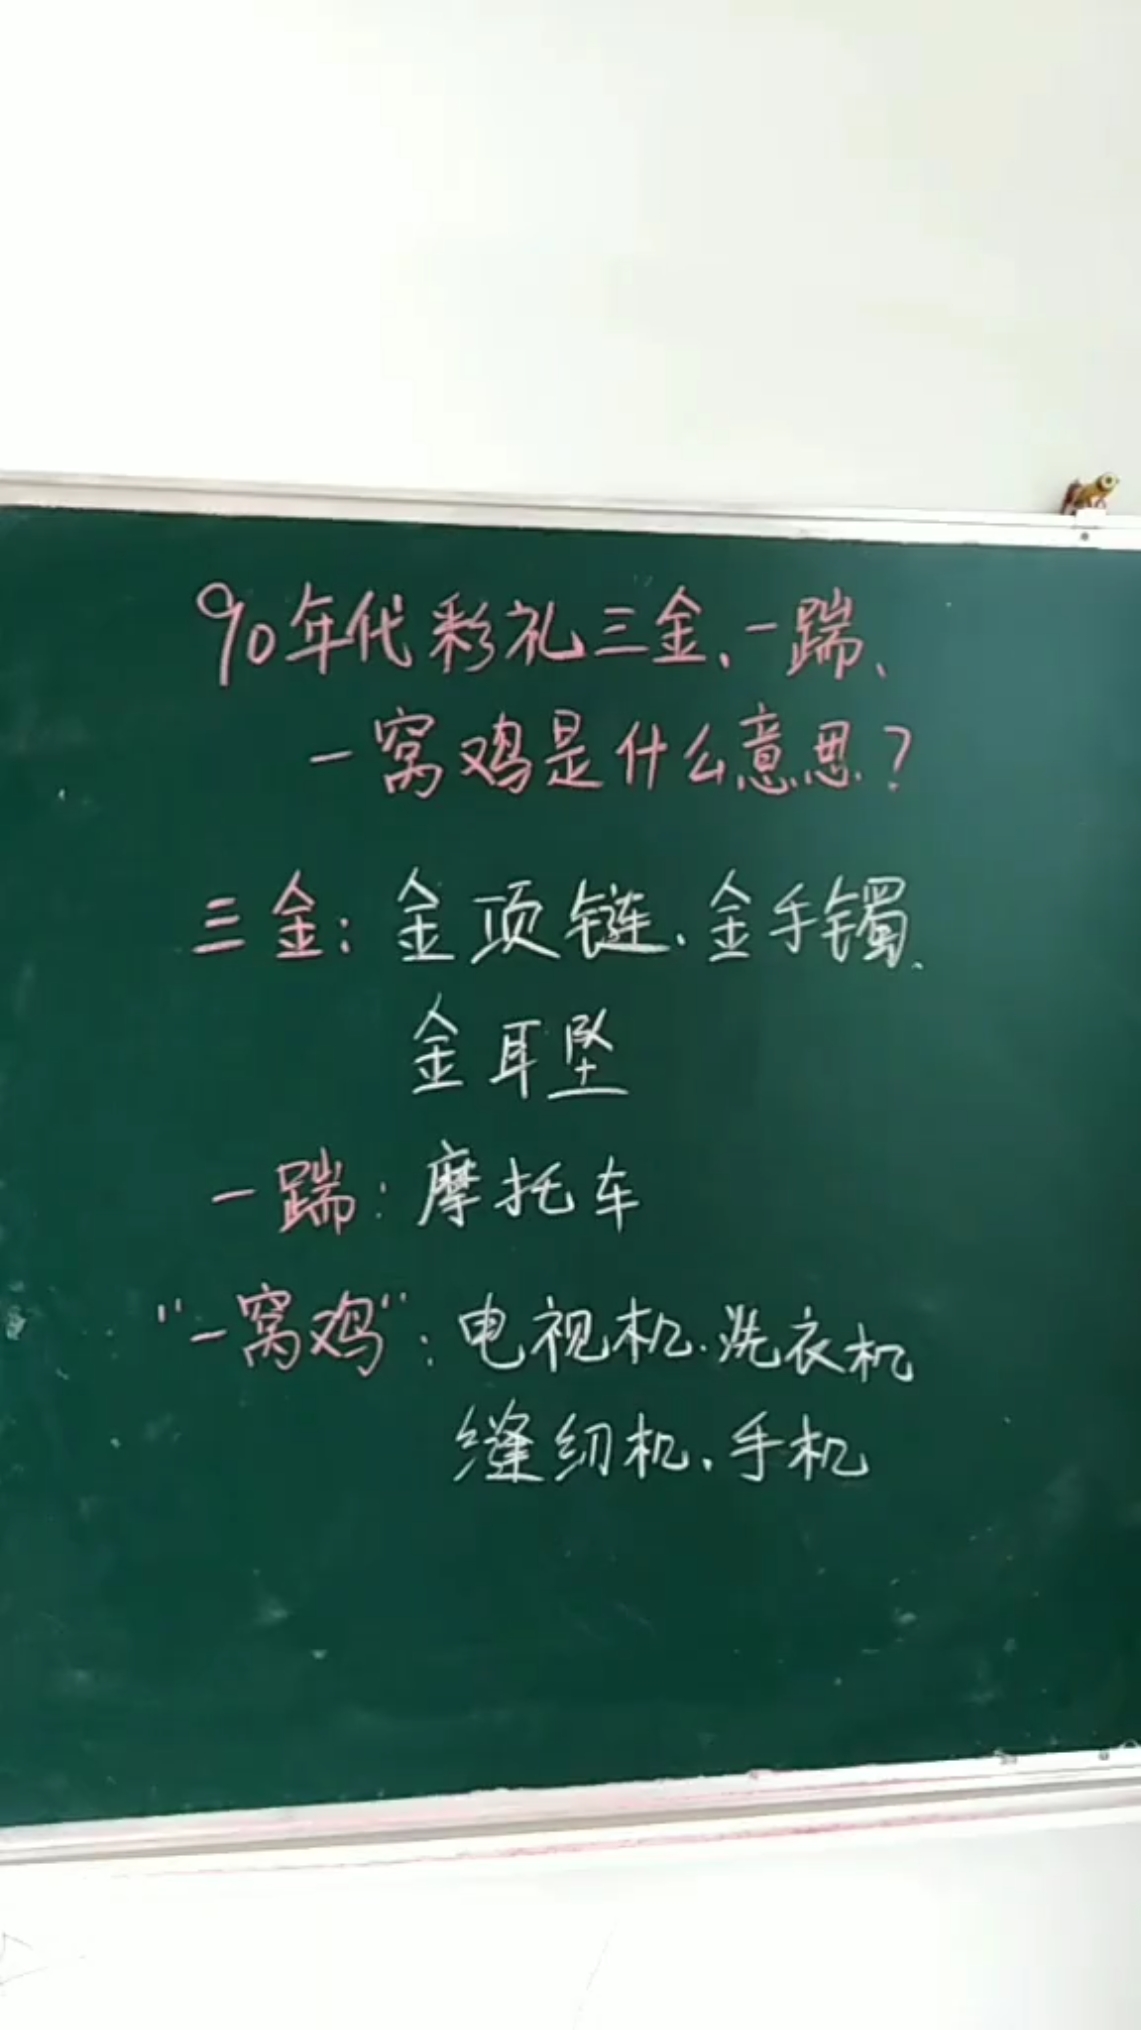 90年代彩礼三金、一踹、
一窝鸡是什么意思？
三金：金项链、金手镯、
金耳坠
一踹：摩托车
“一窝鸡”：电视机、洗衣机
缝纫机、手机